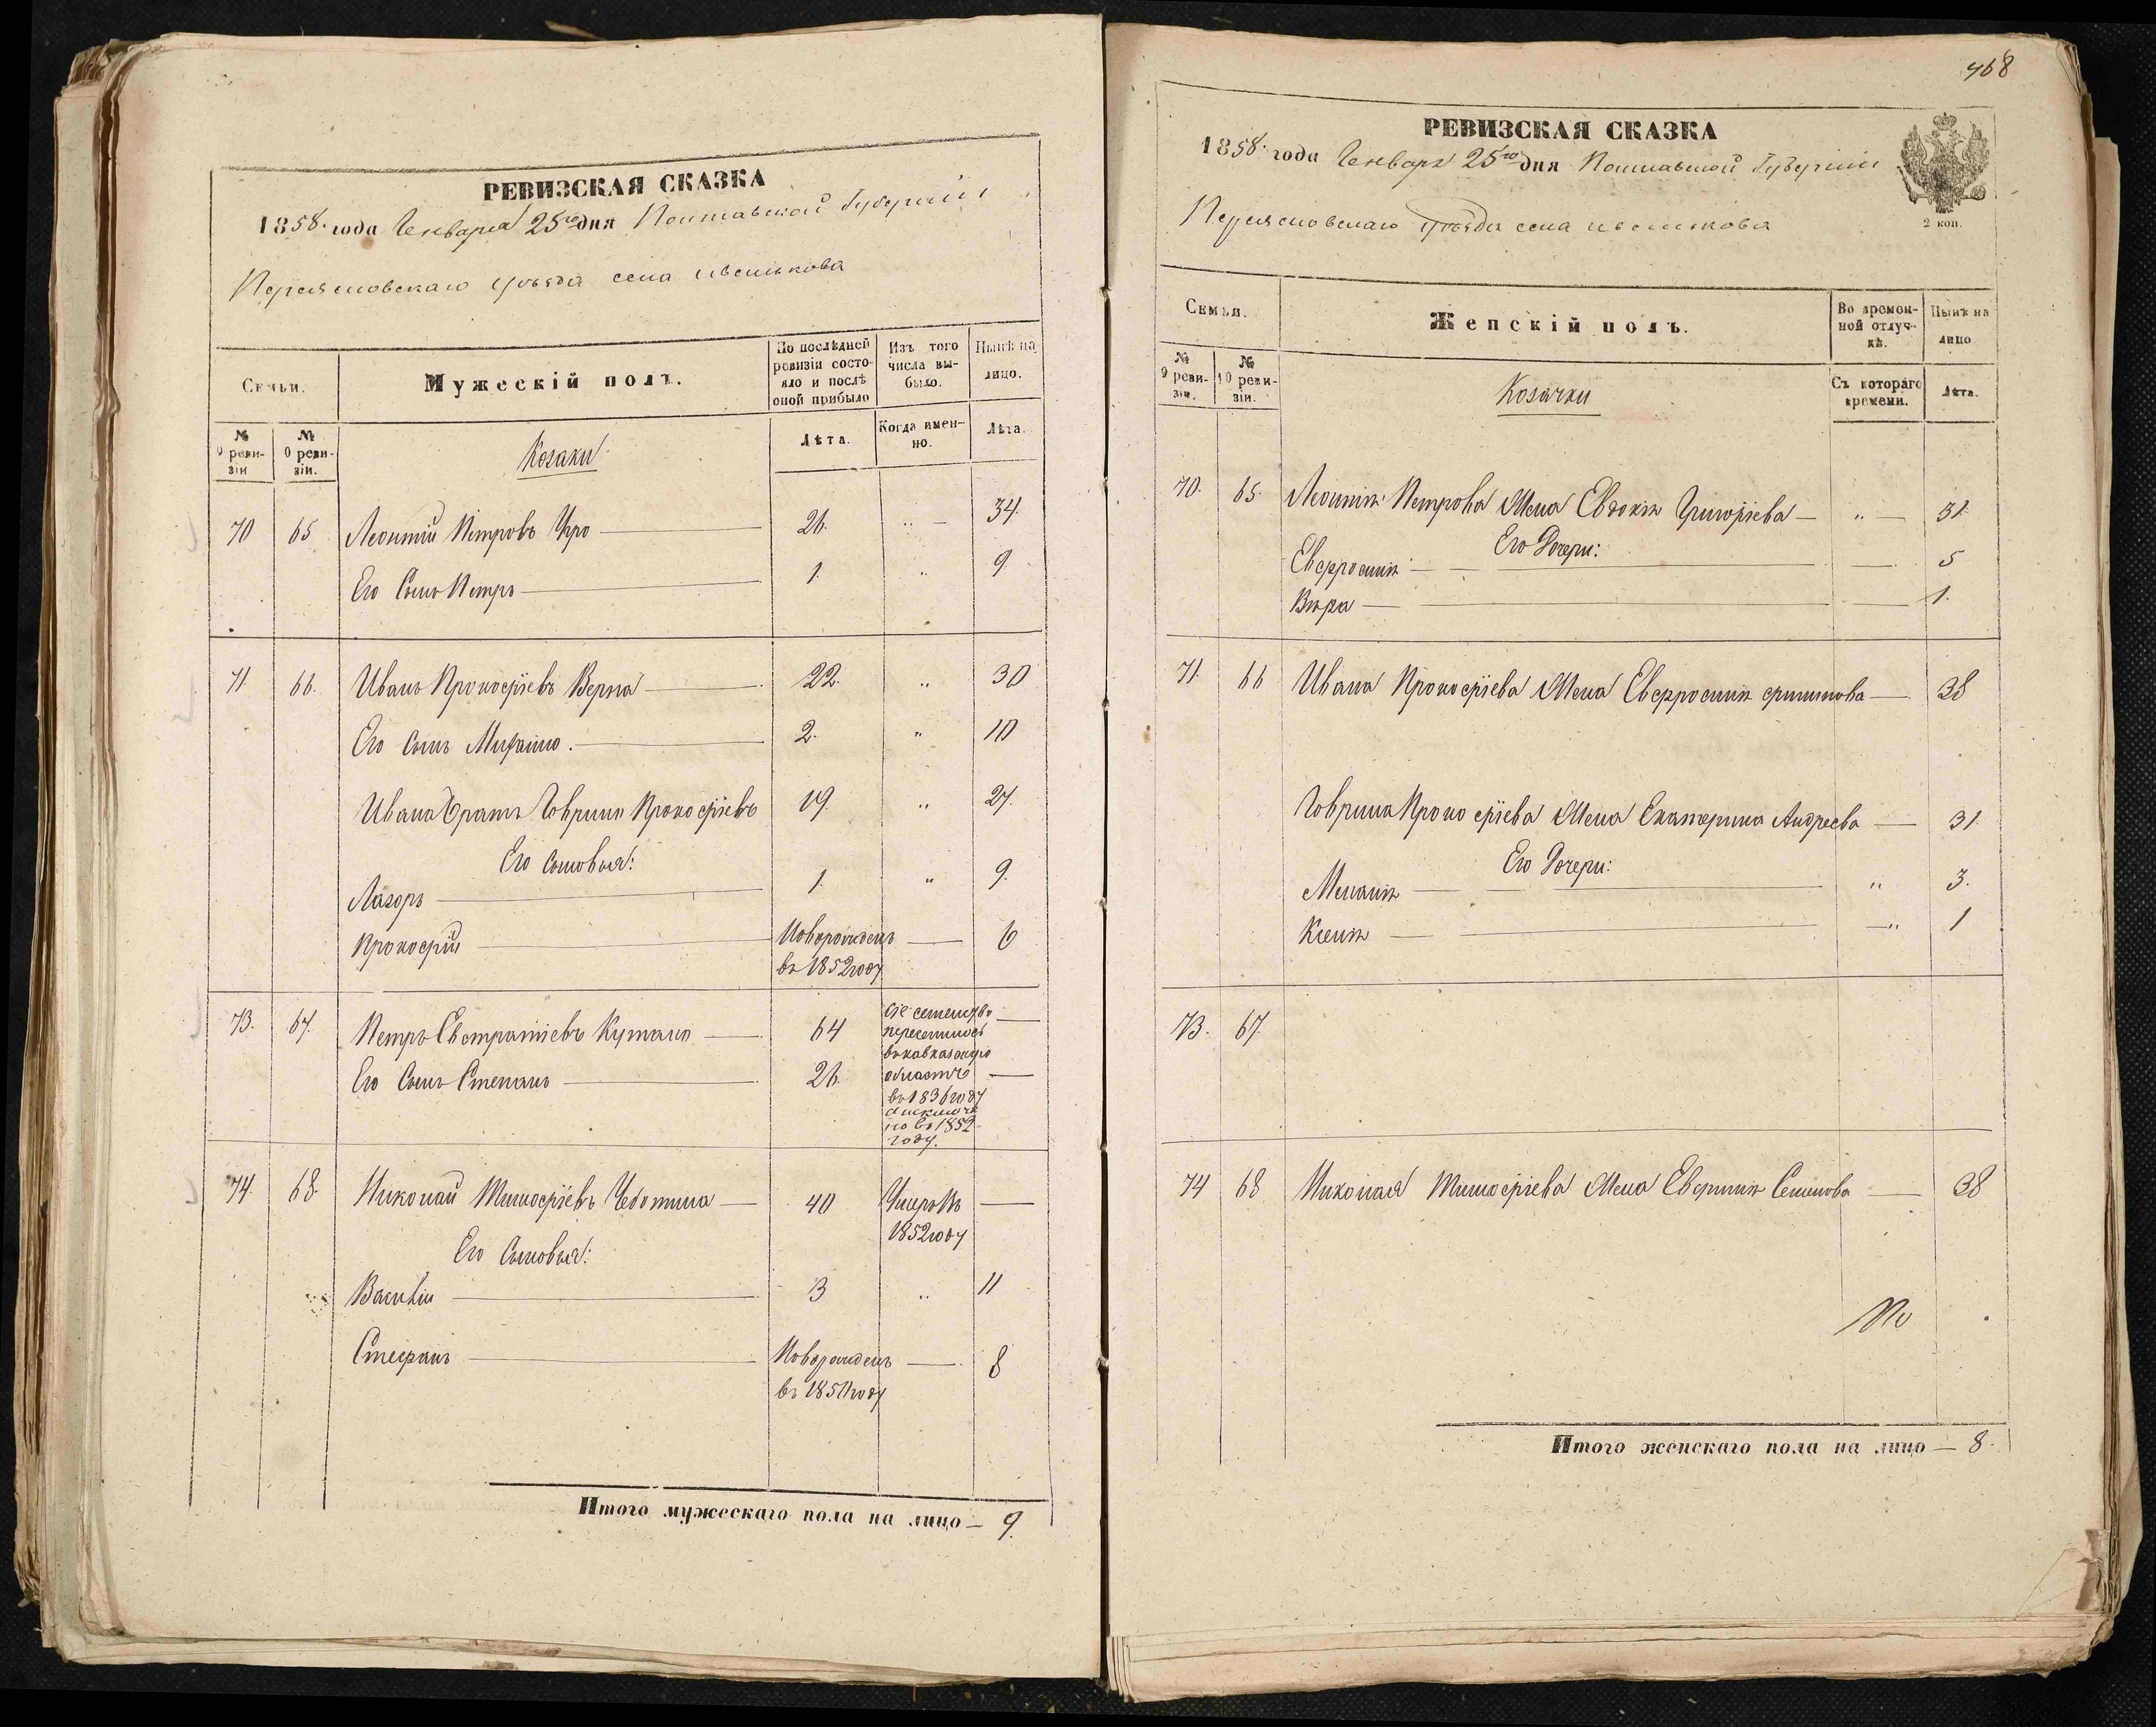 РЕВИЗСКАЯ СКАЗКА
1858. года Генваря 25го дня Полтавской Губерніи
Переясловскаго уѣзда села
Семьи.
Мужескій полъ.
По послѣдней ревизіи состояло и послѣ оной прибыло
Изъ того числа выбыло.
Нынѣ на лицо.
№ 9 ревизіи
№ 10 ревизіи.
Козаки
Лѣта.
Когда именно.
Лѣта.
70 65 Леонтій Петровъ 26. „ — 34.
Его Сынъ Петръ 1. „ 9.
71. 66. Иванъ Прокофіевъ Верна 22. „ 30
Его Сынъ 2. „ 10
Ивана братъ Гаврило Прокофіевъ 19. „ 27.
Его Сыновья:
Лазоръ 1. „ 9.
Прокофій Новорожденъ — 6
въ 1852 году
73. 67. Петръ Евстратіевъ 64 Сіе семейство —
переселилось
въ кавказскую
Его Сынъ Степанъ 26. область —
въ 1836 году
а исключе
но въ 1852
году.
74. 68. Николай Тимофіевъ Чеботина 40 Умеръ въ —
1852 году
Его Сыновья:
Василій 3 „ 11
Стефанъ Новорожденъ — 8
въ 1851 году
Итого мужескаго пола на лицо — 9.
468
РЕВИЗСКАЯ СКАЗКА
1858. года Генваря 25го дня Полтавской Губерніи
Переясловскаго уѣзда села
2 коп.
Семьи.
Женскій полъ.
Во времен-ной отлуч-кѣ.
Нынѣ на лицо
№ 9 реви-зіи.
№ 10 реви-зіи.
Козачки
Съ котораго времени.
Лѣта.
70. 65. Леонтія Петрова Жена Евдокія Григоріева — „ — 31.
Его Дочери:
Евфросинія — 5
Вѣра — 1.
71. 66 Ивана Прокофіева Жена Евфросинія — 38
Гаврила Прокофіева Жена Екатерина Андреева — 31.
Его Дочери:
Меланія — „ 3.
Ксенія — „ 1
73. 67.
74 68 Николая Тимофіева Жена Евфимія Семенова — 38
Итого женскаго пола на лицо — 8.